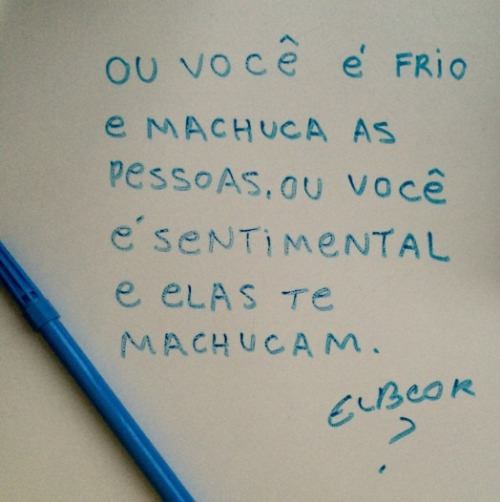 OU VOCÊ é FRIO
e MACHUCA AS
PESSOAS, OU VOCÊ
É SENTIMENTAL
e eLAS Te
MACHUCAM.
ELBCOR
?